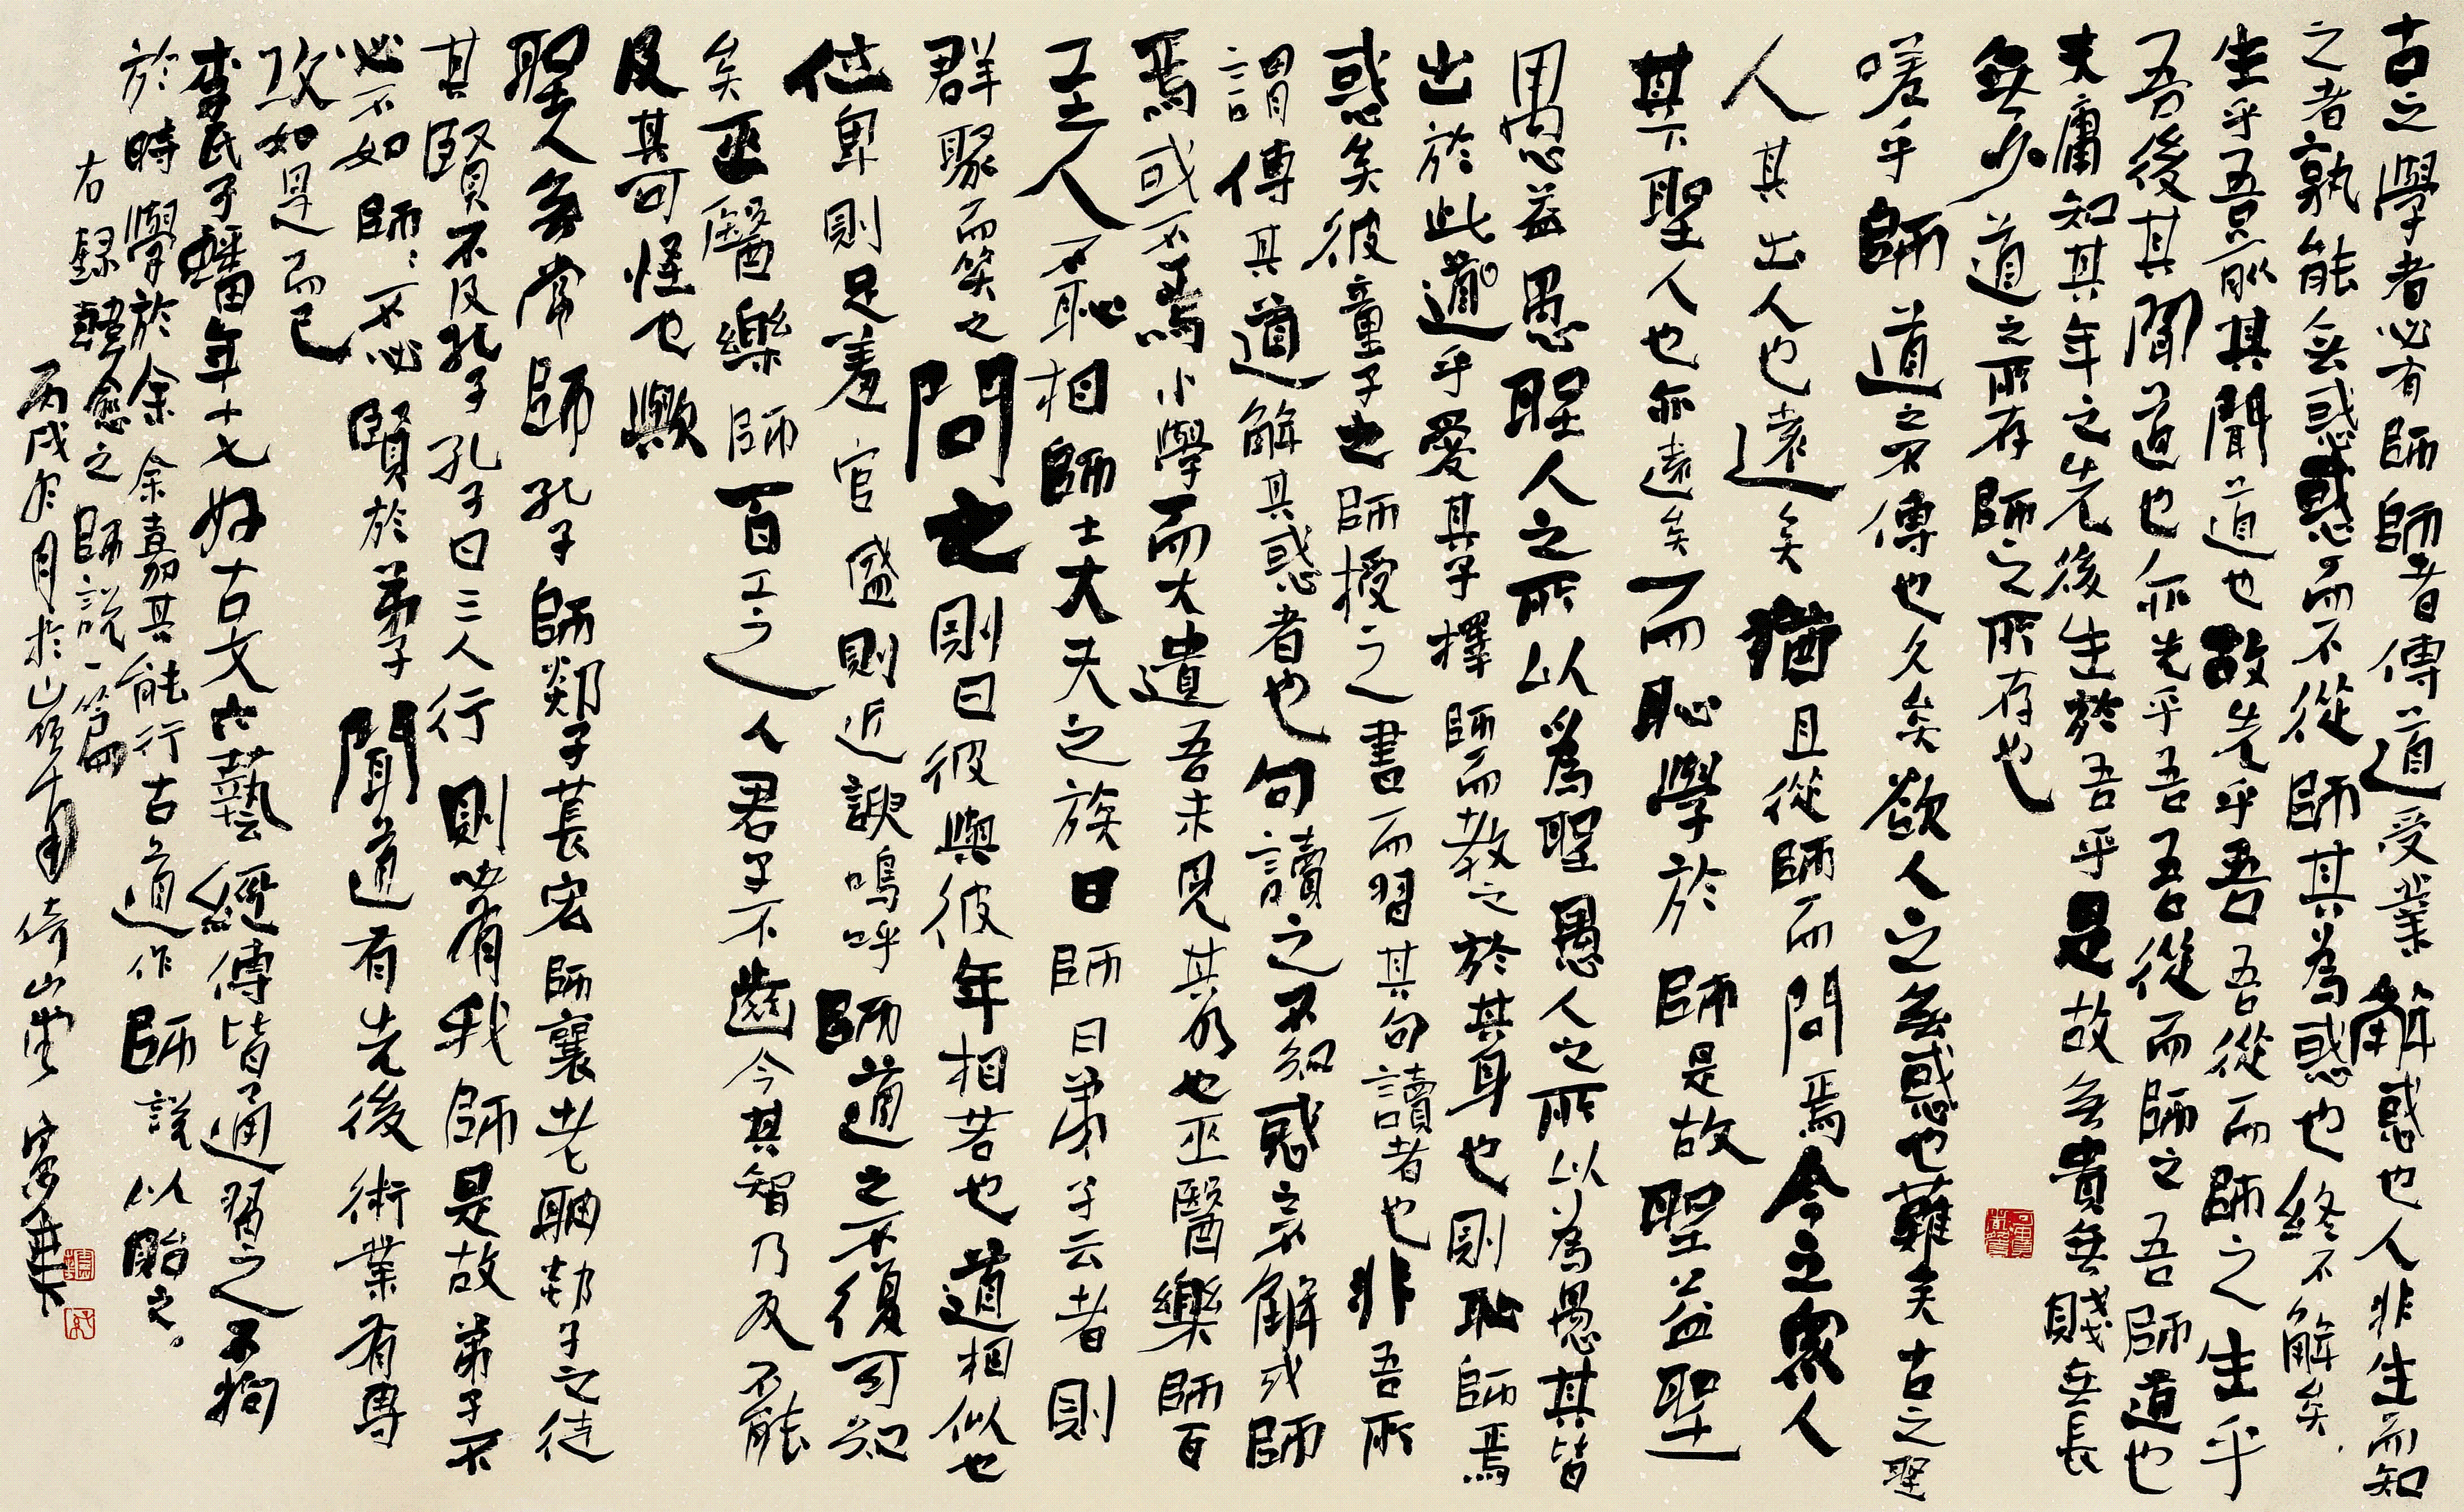 古之學者必有師師者傳道受業解惑也人非生而知
之者孰能無惑惑而不從師其為惑也終不解矣
生乎吾前其聞道也故先乎吾吾從而師之生乎
吾後其聞道也亦先乎吾吾從而師之吾師道也
夫庸知其年之先後生於吾乎是故無貴無賤無長
無少道之所存師之所存也
嗟乎師道之不傳也久矣欲人之無惑也難矣古之聖
人其出人也遠矣猶且從師而問焉今之眾人
其下聖人也亦遠矣而恥學於師是故聖益聖
愚益愚聖人之所以為聖愚人之所以為愚其皆
出於此道乎愛其子擇師而教之於其身也則恥師焉
惑矣彼童子之師授之書而習其句讀者也非吾所
謂傳其道解其惑者也句讀之不知惑之不解或師
焉或不焉小學而大遺吾未見其明也巫醫樂師百
工之人不恥相師士大夫之族曰師曰弟子云者則
群聚而笑之問之則曰彼與彼年相若也道相似也
位卑則足羞官盛則近諛嗚呼師道之不復可知
矣巫醫樂師百工之人君子不齒今其智乃反不能
及其可怪也歟
聖人無常師孔子師郯子萇宏師襄老聃郯子之徒
其賢不及孔子孔子曰三人行則必有我師是故弟子不
必不如師師不必賢於弟子聞道有先後術業有專
攻如是而已
李氏子蟠年十七好古文六藝經傳皆通習之不拘
於時學於余余嘉其能行古道作師說以貽之
右錄韓愈之師說一篇
丙戌年 月於山 倚山